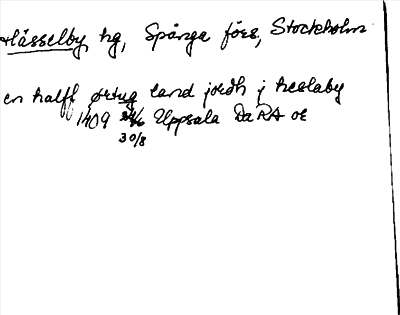 Hässelby hg, Spånga förs, Stockholm
en halff ørtug land jordh j heslaby
1409 Uppsala DaRA oc
30/8